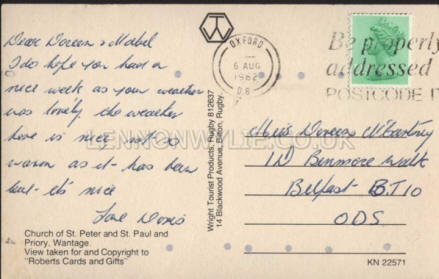 Dear Doreen & Mabel
I do hope you had a
nice week as your weather
was lovely, the weather
here is nice not so
warm as it has been
but it's nice
Love Doris
Church of St. Peter and St. Paul and
Priory, Wantage.
View taken for and Copyright to
"Roberts Cards and Gifts"
Wright Tourist Products, Rugby 812637
14 Blackwood Avenue, Bilton, Rugby
OXFORD
6 AUG
1982
Be properly
addressed
POSTCODE IT
Miss Doreen McCartney
1D Benmore Walk
Belfast BT10
ODS.
KN 22571
LENNONWYLIE.CO.UK